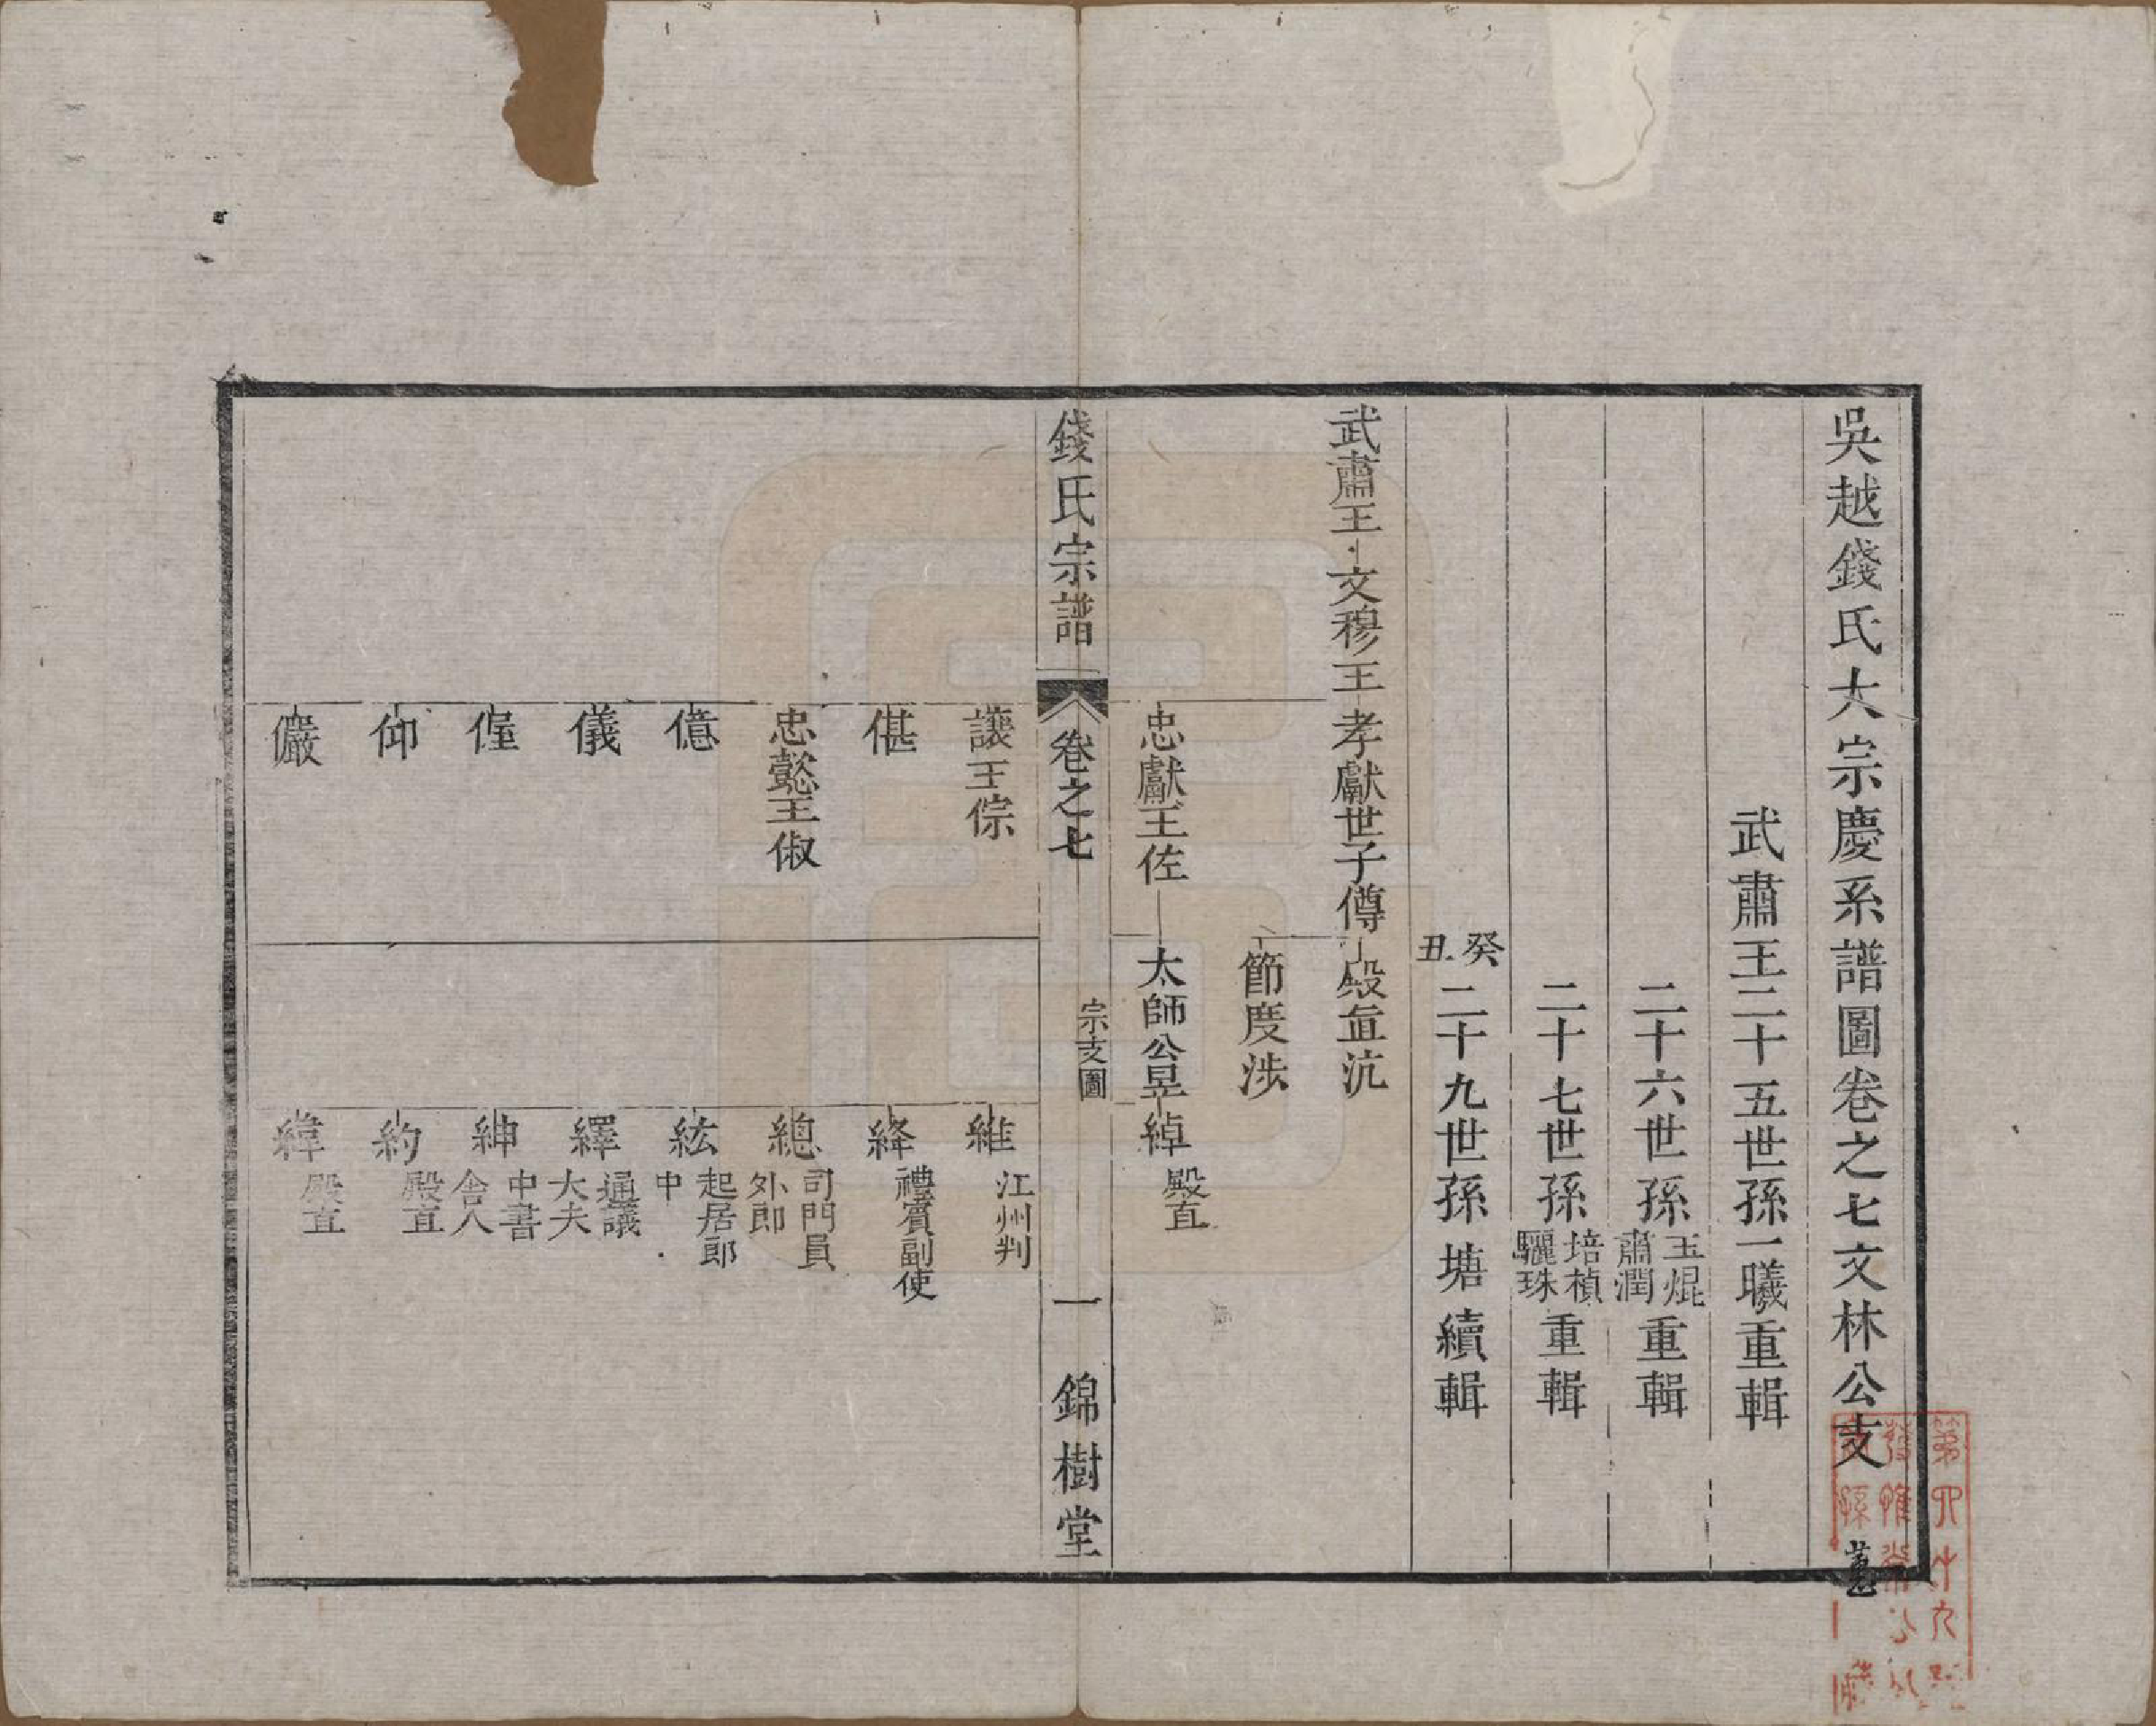 吳越錢氏大宗慶系譜圖卷之七文林公支
武肅王二十五世孫一曦重輯
二十六世孫玉焜
肅潤重輯
二十七世孫培楨
驪珠重輯
癸丑二十九世孫塘續輯
武肅王 文穆王 孝獻世子僔 殿直沆
節度涉
忠獻王佐 太師公昱 綽 殿直
錢氏宗譜 卷之七 宗支圖 一 錦樹堂
讓王倧 維 江州判
偡 絳 禮賓副使
忠懿王俶 總 司門員
外郎
億 紘 起居郎
中
儀 繹 通議
大夫
偓 紳 中書
舍人
仰 約 殿直
儼 緯 殿直